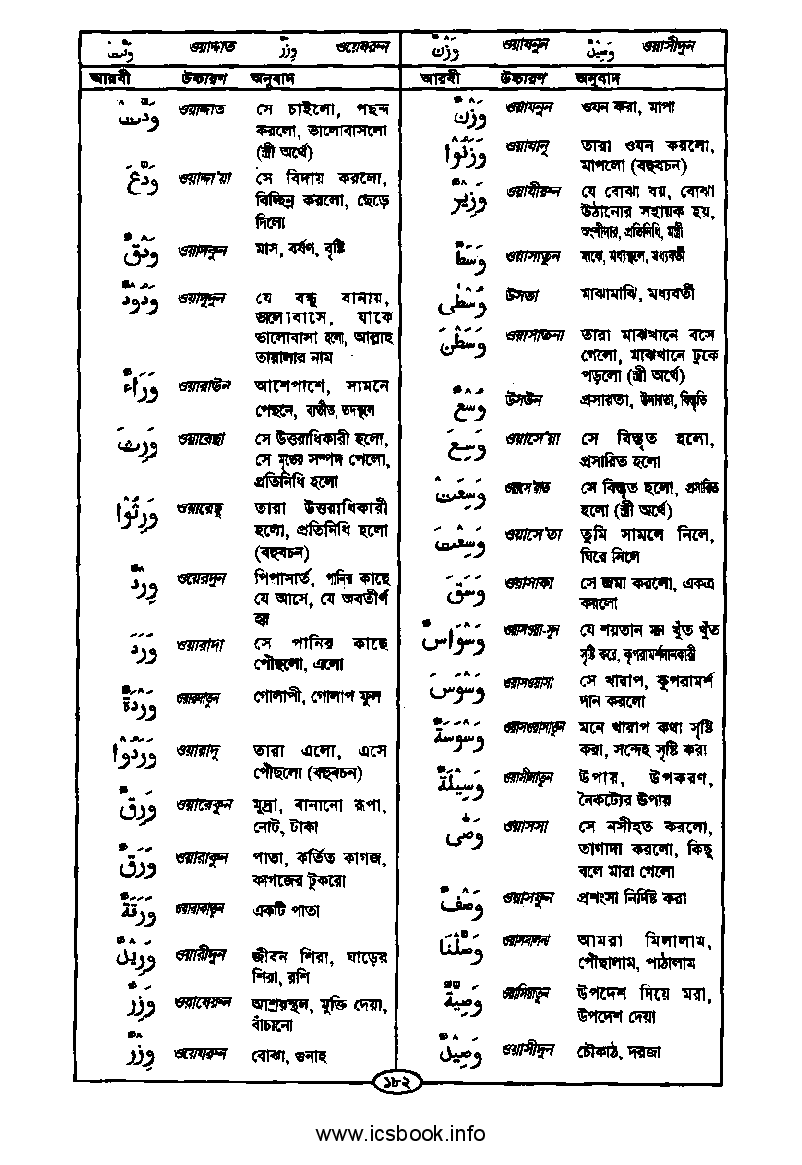 وَدَّتْ ওয়াদ্দাত وِزْرٌ ওয়েযরুন
وَزْنٌ ওয়াযনুন وَصِيْدٌ ওয়াসীদুন
আরবী উচ্চারণ অনুবাদ
وَدَّتْ ওয়াদ্দাত সে চাইলো, পছন্দ
করলো, ভালোবাসলো
(স্ত্রী অর্থে)
وَدَّعَ ওয়াদ্দা'য়া সে বিদায় করলো,
বিচ্ছিন্ন করলো, ছেড়ে
দিলো
وَدْقٌ ওয়াদকুন মাস, বর্ষণ, বৃষ্টি
وَدُوْدٌ ওয়াদূদুন যে বন্ধু বানায়,
ভালোবাসে, যাকে
ভালোবাসা হলো, আল্লাহ
তায়ালার নাম
وَرَآءٌ ওয়ারাউন আশেপাশে, সামনে
পেছনে, ব্যতীত, তদস্থলে
وَرِثَ ওয়ারেছা সে উত্তরাধিকারী হলো,
সে মৃতের সম্পদ পেলো,
প্রতিনিধি হলো
وَرِثُوْا ওয়ারেছূ তারা উত্তরাধিকারী
হলো, প্রতিনিধি হলো
(বহুবচন)
وِرْدٌ ওয়েরদুন পিপাসার্ত, পানির কাছে
যে আসে, যে অবতীর্ণ
হয়
وَرَدَ ওয়ারাদা সে পানির কাছে
পৌঁছলো, এলো
وَرْدَةٌ ওয়ারদাতুন গোলাপী, গোলাপ ফুল
وَرَدُوْا ওয়ারাদূ তারা এলো, এসে
পৌঁছলো (বহুবচন)
وَرِقٌ ওয়ারেকুন মুদ্রা, বানানো রূপা,
নোট, টাকা
وَرَقٌ ওয়ারাকুন পাতা, কর্তিত কাগজ,
কাগজের টুকরো
وَرَقَةٌ ওয়ারাকাতুন একটি পাতা
وَرِيْدٌ ওয়ারীদুন জীবন শিরা, ঘাড়ের
শিরা, রশি
وَزَرٌ ওয়াযেরুন আশ্রয়স্থল, মুক্তি দেয়া,
বাঁচানো
وِزْرٌ ওয়েযরুন বোঝা, গুনাহ
আরবী উচ্চারণ অনুবাদ
وَزْنٌ ওয়াযনুন ওযন করা, মাপা
وَزَنُوْا ওয়াযানূ তারা ওযন করলো,
মাপলো (বহুবচন)
وَزِيْرٌ ওয়াযীরুন যে বোঝা বয়, বোঝা
উঠানোর সহায়ক হয়,
অংশীদার, প্রতিনিধি, মন্ত্রী
وَسَطًا ওয়াসাতুন মাঝে, মধ্যস্থলে, মধ্যবর্তী
وُسْطٰى উসতা মাঝামাঝি, মধ্যবর্তী
وَسَطْنَ ওয়াসাতনা তারা মাঝখানে বসে
গেলো, মাঝখানে ঢুকে
পড়লো (স্ত্রী অর্থে)
وُسْعٌ উসউন প্রসারতা, উদারতা, বিস্তৃতি
وَسِعَ ওয়াসে'য়া সে বিস্তৃত হলো,
প্রসারিত হলো
وَسِعَتْ ওয়াসে'য়াত সে বিস্তৃত হলো, প্রসারিত
হলো (স্ত্রী অর্থে)
وَسِعْتَ ওয়াসে'তা তুমি সামলে নিলে,
ঘিরে নিলে
وَسَقَ ওয়াসাকা সে জমা করলো, একত্র
করলো
وَسْوَاسٌ ওয়াসওয়া-সুন যে শয়তান মনে খুঁত খুঁত
সৃষ্টি করে, কুপরামর্শদানকারী
وَسْوَسَ ওয়াসওয়াসা সে খারাপ, কুপরামর্শ
দান করলো
وَسْوَسَةٌ ওয়াসওয়াসাতুন মনে খারাপ কথা সৃষ্টি
করা, সন্দেহ সৃষ্টি করা
وَسِيْلَةٌ ওয়াসীলাতুন উপায়, উপকরণ,
নৈকট্যের উপায়
وَصّٰى ওয়াসসা সে নসীহত করলো,
তাগাদা করলো, কিছু
বলে মারা গেলো
وَصْفٌ ওয়াসফুন প্রশংসা নির্দিষ্ট করা
وَصَّلْنَا ওয়াসসালনা আমরা মিলালাম,
পৌঁছালাম, পাঠালাম
وَصِيَّةٌ ওয়াসিয়াতুন উপদেশ দিয়ে মরা,
উপদেশ দেয়া
وَصِيْدٌ ওয়াসীদুন চৌকাঠ, দরজা
১৮২
www.icsbook.info